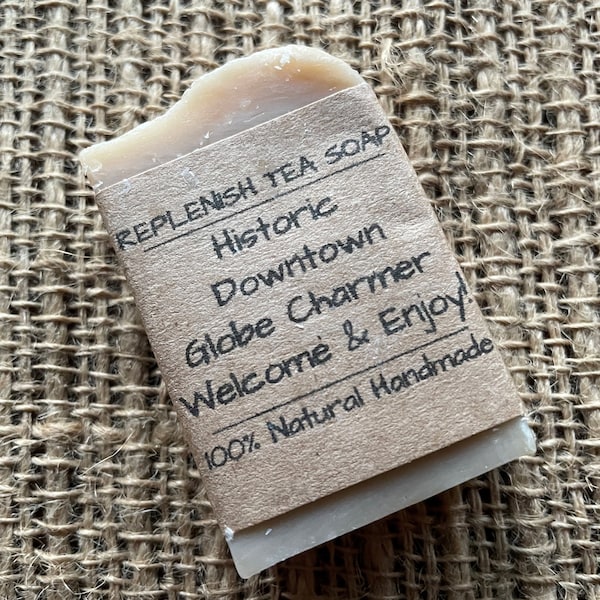 REPLENISH TEA SOAP
Historic
Downtown
Globe Charmer
Welcome & Enjoy!
100% Natural Handmade